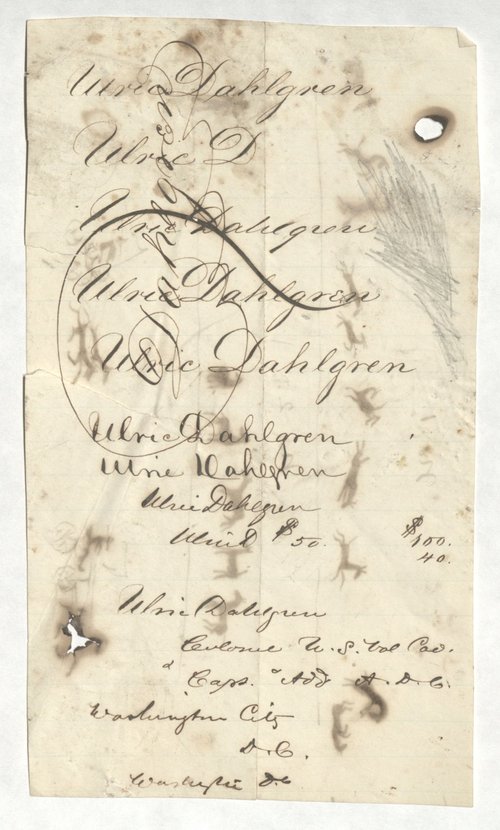 Ulric Dahlgren
Ulric D
Ulric Dahlgren
Ulric Dahlgren
Ulric Dahlgren
Dahlgren
Ulric Dahlgren
Ulric Dahlgren
Ulric Dahlgren
Ulric D $50. $100.
40.
Ulric Dahlgren
Colonel U. S. Vol Cav.
" Capt. " Add A. D. C.
Washington City
D. C.
Washington D.C